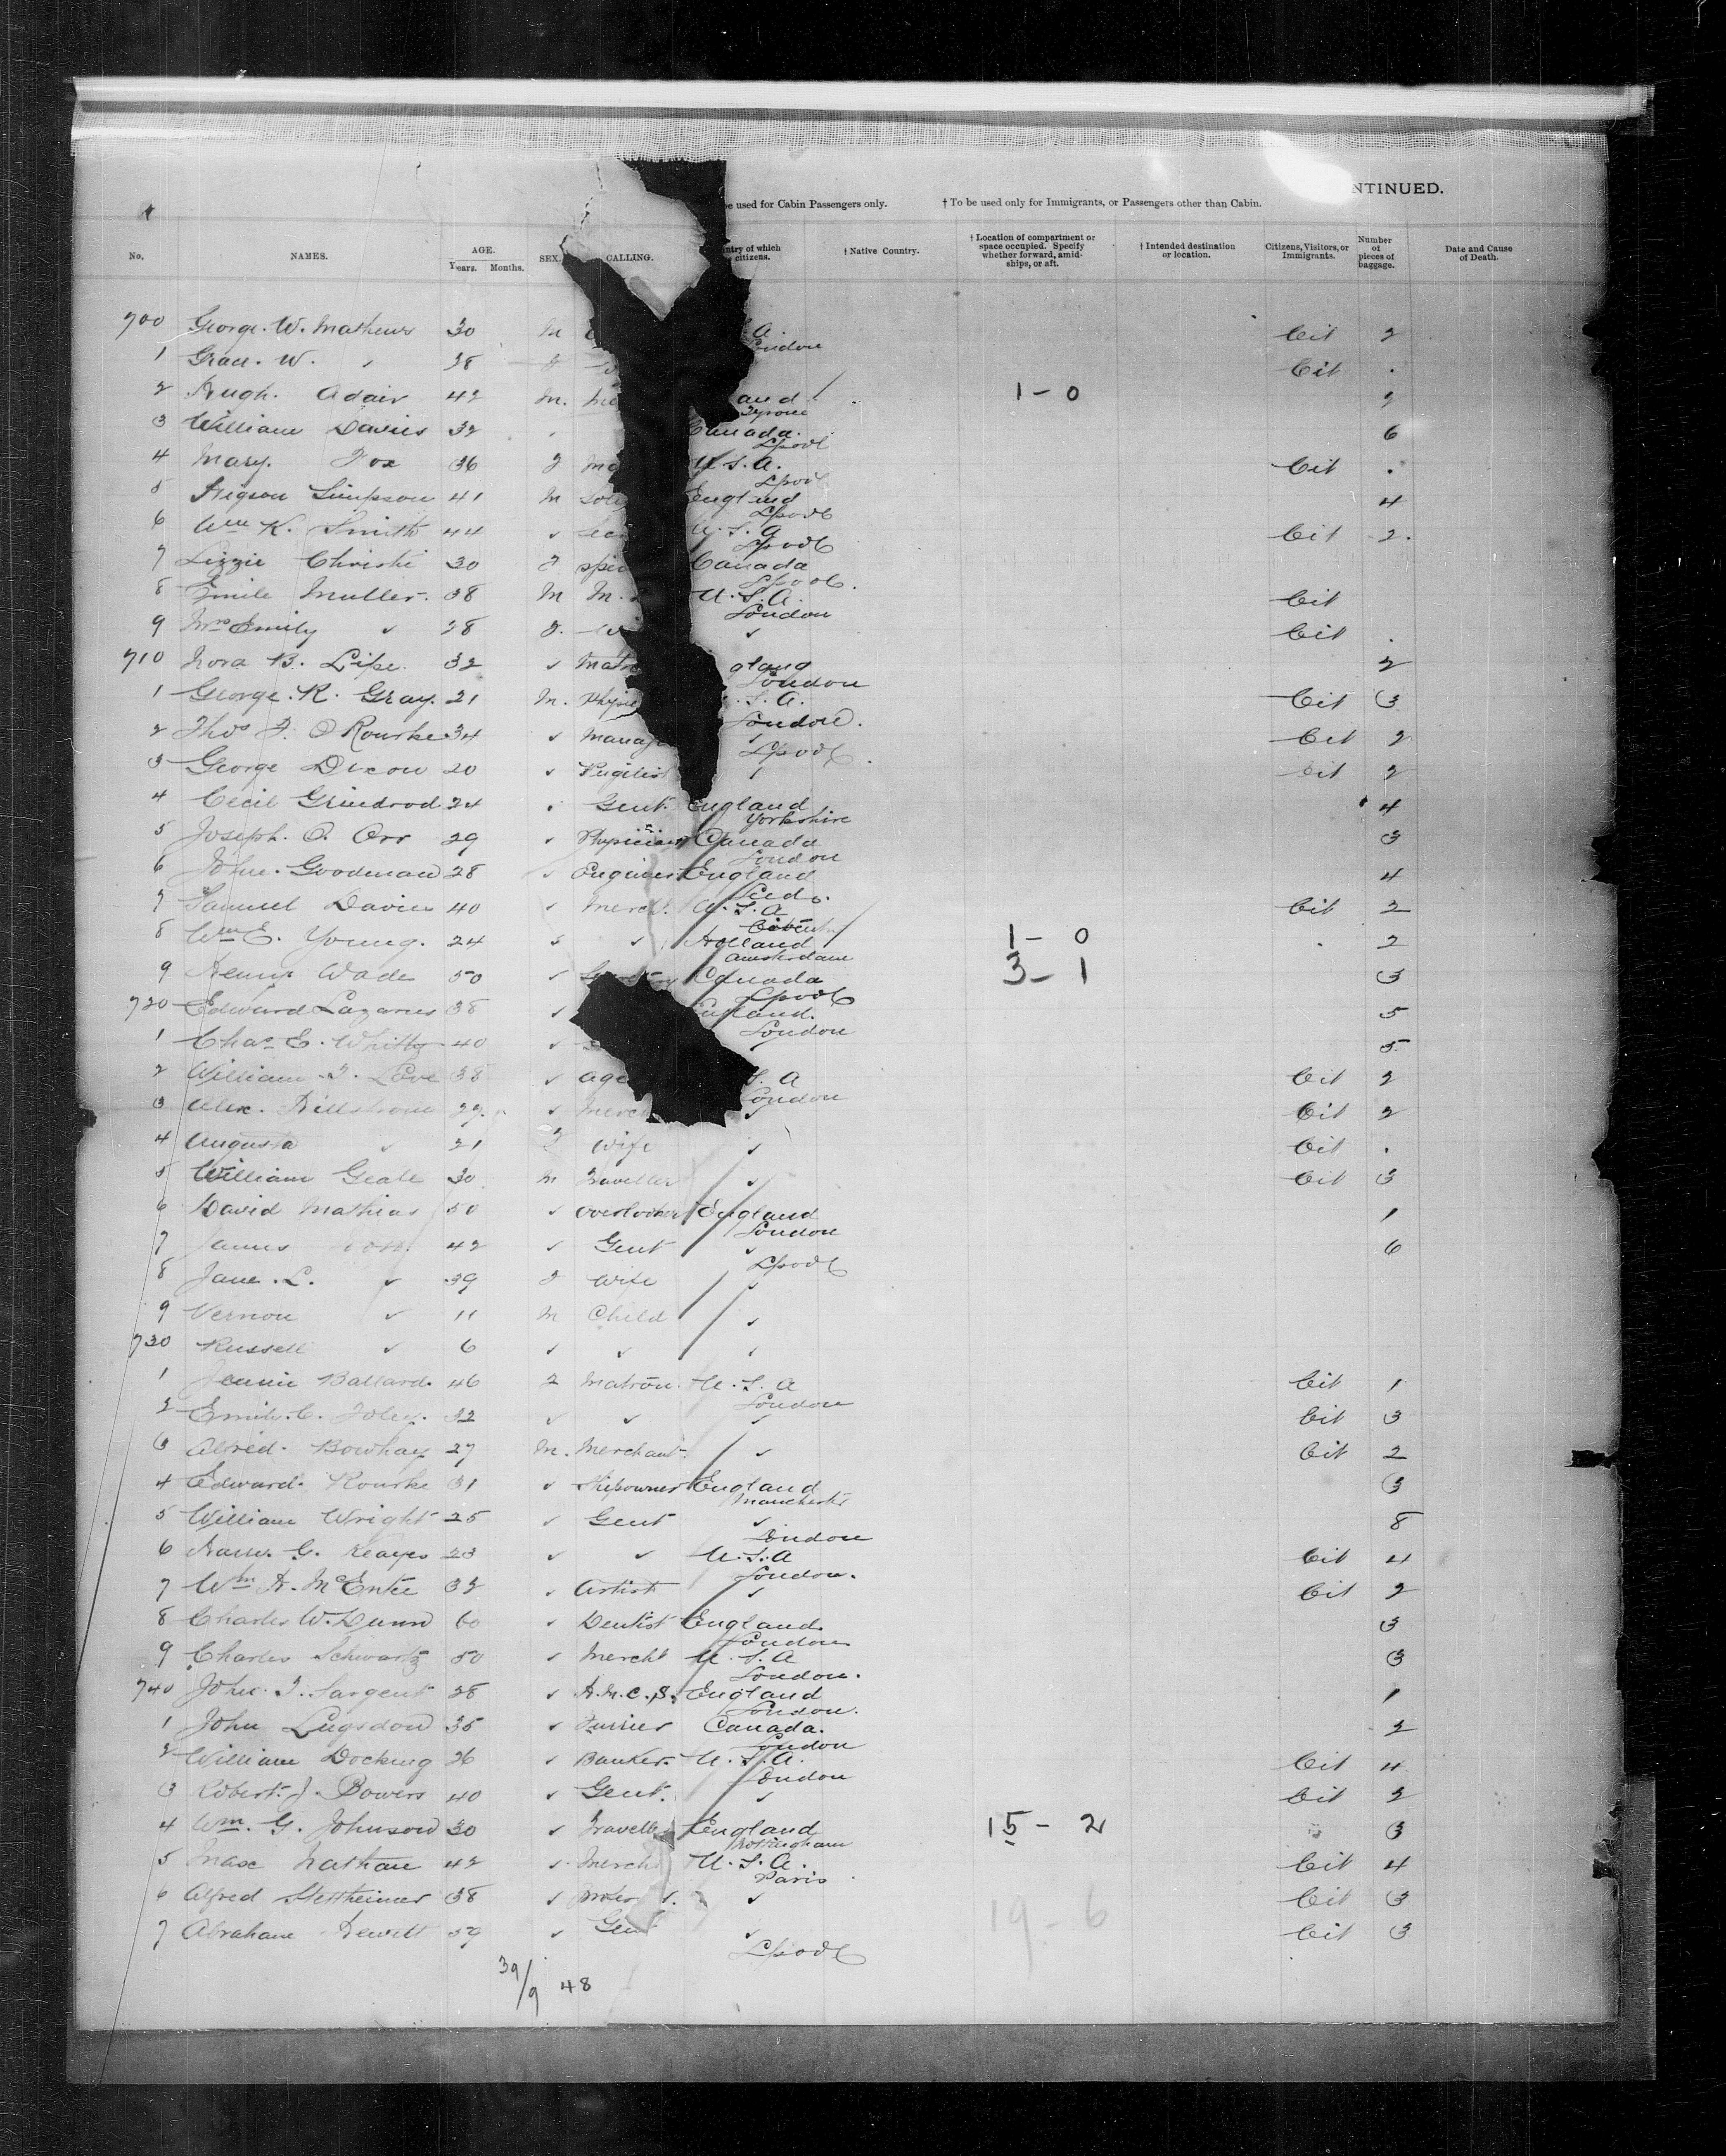 NTINUED.
be used for Cabin Passengers only. † To be used only for Immigrants, or Passengers other than Cabin.
No. NAMES. AGE. Years. Months. SEX. CALLING. ntry of which citizens. † Native Country. † Location of compartment or space occupied. Specify whether forward, amid-ships, or aft. † Intended destination or location. Citizens, Visitors, or Immigrants. Number of pieces of baggage. Date and Cause of Death.
700 George. W. Mathews 30 M .A. Cit 2
London
1 W. 38 Cit .
2 Hugh. Adair 42 M. and 1 - 0 2
Tyrone
3 William Davies 32 Canada. 6
Lpool
4 Mary. Fox 36 F U.S.A. Cit .
Lpool
5 Simpson 41 M England 4
Lpool
6 Wm K. Smith 44 ✓ U.S.A Cit 2.
Lpool
7 Lizzie Christie 30 F Canada
Lpool.
8 Emile Muller. 38 M M. U.S.A. Cit
London
9 Mrs Emily ✓ 28 F. ✓ Cit .
710 Nora B. Lipe. 32 ✓ gland 2
London
1 George. R. Gray. 21 M. Physi .S.A. Cit 3
London.
2 Thos F. O Rourke 34 ✓ Manag ✓ Cit 2
Lpool
3 George Dixon 20 ✓ Pugilist ✓ Cit 2
4 Cecil Grindrod 24 Gent. England 4
Yorkshire
5 Joseph. O. Orr 29 ✓ Physician Canada 3
London
6 John. Goodman 28 ✓ Engineer England 4
Leeds.
7 Samuel Davies 40 ✓ Merch. U.S.A Cit 2
8 Wm E. Young. 24 ✓ ✓ Holland 1 - 0 2
Amsterdam
9 Henry Wade 50 ✓ Canada 3 - 1 3
Lpool
720 Edward Lazarus 38 ✓ ngland. 5
London
1 Chas E. Whitty 40 ✓ ✓ 5
2 William T. Love 38 ✓ age S. A Cit 2
London
3 Alex. Hillstrom 29 ✓ Merch ✓ Cit 2
4 Augusta ✓ 21 F Wife ✓ Cit .
5 William Geale 30 M Traveller ✓ Cit 3
6 David Mathias 50 ✓ Overlooker England 1
London
7 James 42 ✓ Gent ✓ 6
Lpool
8 Jane. L. ✓ 39 F Wife ✓
9 Vernon ✓ 11 M Child ✓
730 Russell ✓ 6 ✓ ✓ ✓
1 Jennie Ballard. 46 F Matron. U.S.A Cit 1
London
2 Emily. C. Foley. 32 ✓ ✓ ✓ Cit 3
3 Alfred. Bowhay 27 M. Merchant ✓ Cit 2
4 Edward. Rourke 31 ✓ Shipowner England 3
Manchester
5 William Wright 25 ✓ Gent ✓ 8
London
6 G. Keayes 23 ✓ ✓ U.S.A Cit 4
London.
7 Wm H. McEntee 32 ✓ Artist ✓ Cit 2
8 Charles W. Dunn 60 ✓ Dentist England 3
London
9 Charles Schwartz 50 ✓ Mercht U.S.A 3
London.
740 John. T. Sargent 28 ✓ England 1
London.
1 John Lugsdon 35 ✓ Furrier Canada. 2
London
2 William Docking 26 ✓ Banker. U.S.A. Cit 4
London
3 Robert. J. Bowers 40 ✓ Gent. ✓ Cit 2
4 Wm. G. Johnson 30 ✓ Traveller England 15 - 2 3
Nottingham
5 Max Nathan 42 ✓ Merch U.S.A. Cit 4
Paris
6 Alfred Stettheimer 38 ✓ ✓ Cit 3
19 6
7 Abraham Hewitt 59 ✓ Gent ✓ Cit 3
Lpool
39/9 48